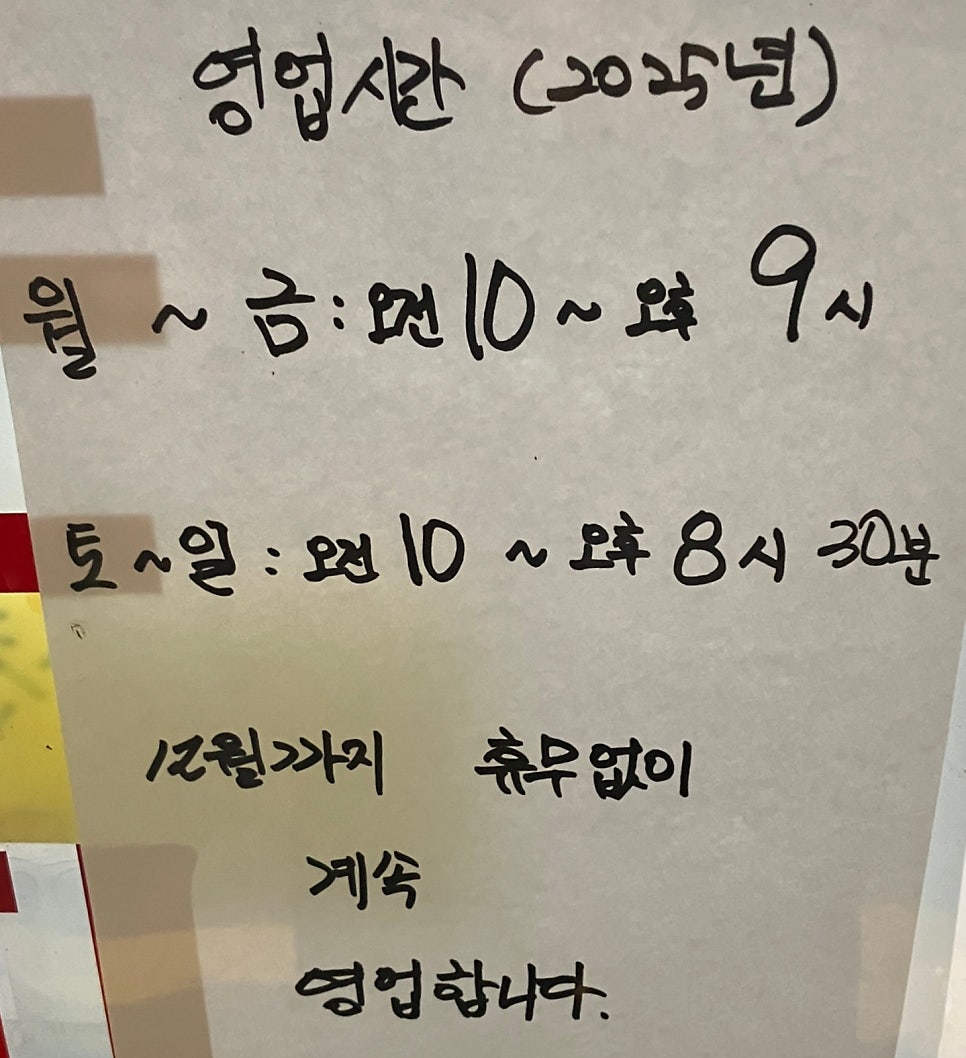 영업시간 (2025년)
월 ~ 금 : 오전 10 ~ 오후 9시
토 ~ 일 : 오전 10 ~ 오후 8시 30분
12월까지 휴무없이
계속
영업합니다.